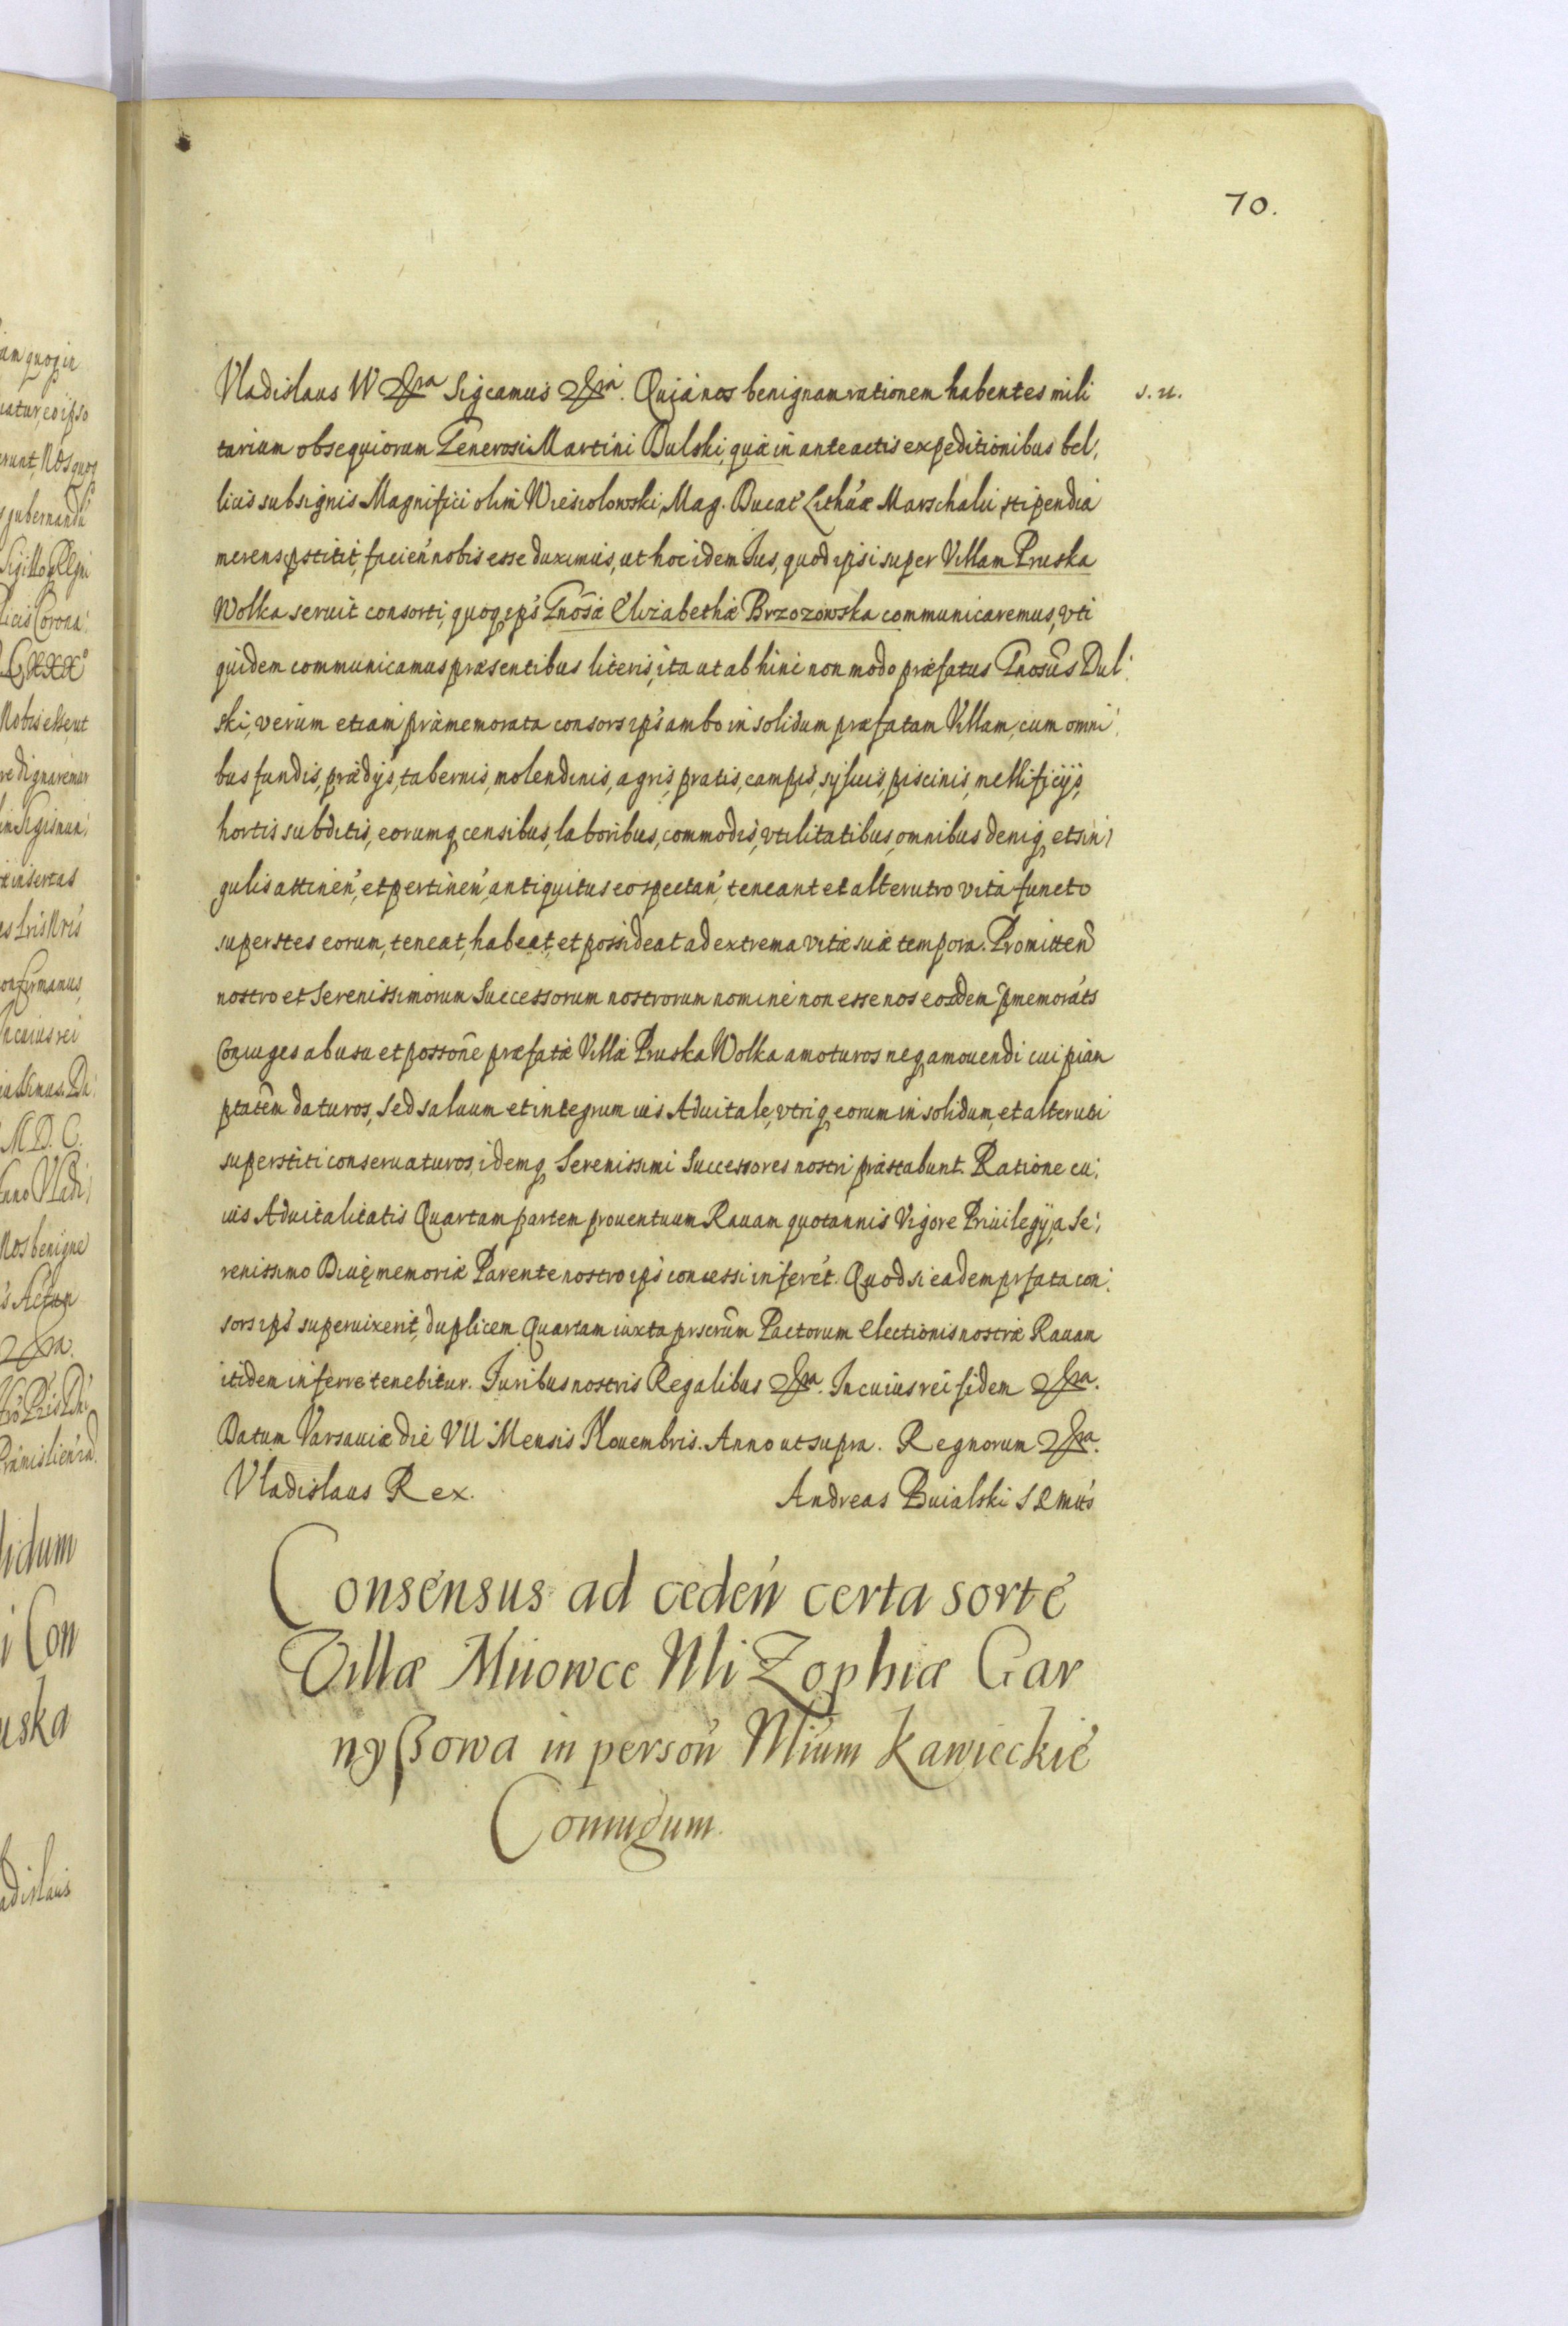 70.
Vladislaus IV &ra Sigcamus &ra. Quia nos benignam rationem habentes mili
s. u.
tarium obsequiorum Generosi Martini Dulski, quæ in anteactis expeditionibus bel,
licis sub signis Magnifici olim Wiesiolowski, Mag. Ducat Lithuæ Marschalci, stipendia
merens pstitit, facien nobis esse duximus, ut hoc idem Ius, quod ipsi super Villam Pruska
Wolka seruit consorti, quoq ips Gnosæ Elizabethæ Brzozowska communicaremus, vti
quidem communicamus præsentibus literis, ita ut ab hinc non modo præfatus Gnosus Dul,
ski, verum etiam præmemorata consors ips ambo in solidum præfatam Villam, cum omni,
bus fundis, prædijs, tabernis, molendinis, agris, pratis, campis, syluis, piscinis, mellificijs,
hortis subditis, eorumq censibus, laboribus, commodis, vtilitatibus, omnibus deniq, et sin,
gulis attinen, et pertinen, antiquitus eo spectan, teneant et alterutro vita functo
superstes eorum, teneat, habeat, et possideat ad extrema vitæ suæ tempora. Promitten
nostro et Serenissimorum Successorum nostrorum nomine non esse nos eosdem pmemorats
Coniuges ab usu et possone præfatæ Villæ Pruska Wolka amoturos neq amouendi cuipiam
ptatem daturos, sed saluum et integrum ius Aduitale, vtriq eorum in solidum, et alteruti
superstiti conseruaturos, idemq Serenissimi Successores nostri præstabunt. Ratione cu,
ius Aduitalitatis Quartam partem prouentuum Rauam quotannis Vigore Priuilegij, a Se,
renissimo Diuę memoriæ Parente nostro ips concessi inferet. Quod si eadem prfata con,
sors ips superuixerit, duplicem Quartam iuxta prscrum Pactorum electionis nostræ Rauam
itidem inferre tenebitur. Iuribus nostris Regalibus &ra. In cuius rei fidem &ra.
Datum Varsauiæ die VII Mensis Nouembris. Anno ut supra. Regnorum &ra.
Vladislaus Rex.
Andreas Buialski S R Mtis
Consensus ad ceden certa sorte
Villæ Miiowce Mli Zophiæ Gar
nyßowa in person Mlium Kawieckie
Coniugum.